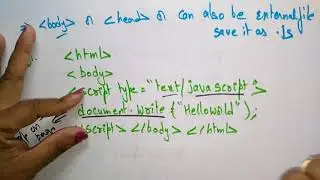 <body> or <head> or can also be external file
save it as .js
<html>
<body>
<script type="text/javascript">
document.write("Helloworld");
script> </body> </html>